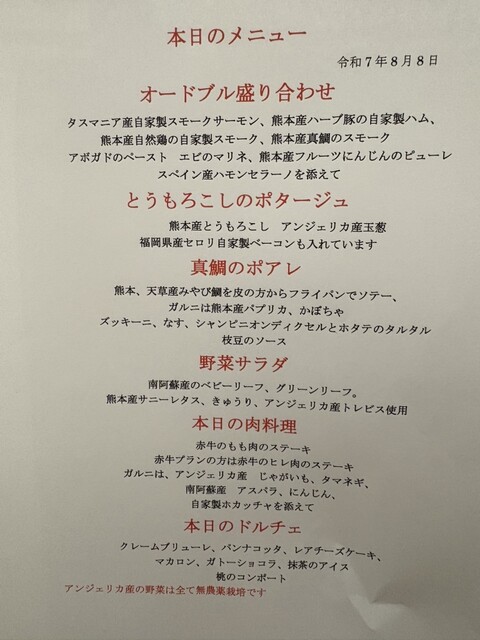 本日のメニュー
令和７年８月８日
オードブル盛り合わせ
タスマニア産自家製スモークサーモン、熊本産ハーブ豚の自家製ハム、
熊本産自然鶏の自家製スモーク、熊本産真鯛のスモーク
アボガドのペースト　エビのマリネ、熊本産フルーツにんじんのピューレ
スペイン産ハモンセラーノを添えて
とうもろこしのポタージュ
熊本産とうもろこし　アンジェリカ産玉葱
福岡県産セロリ自家製ベーコンも入れています
真鯛のポアレ
熊本、天草産みやび鯛を皮の方からフライパンでソテー、
ガルニは熊本産パプリカ、かぼちゃ
ズッキーニ、なす、シャンピニオンディクセルとホタテのタルタル
枝豆のソース
野菜サラダ
南阿蘇産のベビーリーフ、グリーンリーフ。
熊本産サニーレタス、きゅうり、アンジェリカ産トレビス使用
本日の肉料理
赤牛のもも肉のステーキ
赤牛プランの方は赤牛のヒレ肉のステーキ
ガルニは、アンジェリカ産　じゃがいも、タマネギ、
南阿蘇産　アスパラ、にんじん、
自家製ホカッチャを添えて
本日のドルチェ
クレームブリューレ、パンナコッタ、レアチーズケーキ、
マカロン、ガトーショコラ、抹茶のアイス
桃のコンポート
アンジェリカ産の野菜は全て無農薬栽培です